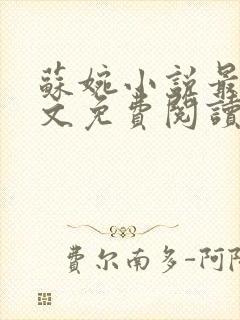 蘇婉小説最
文免費閱讀
費尔南多-阿隆